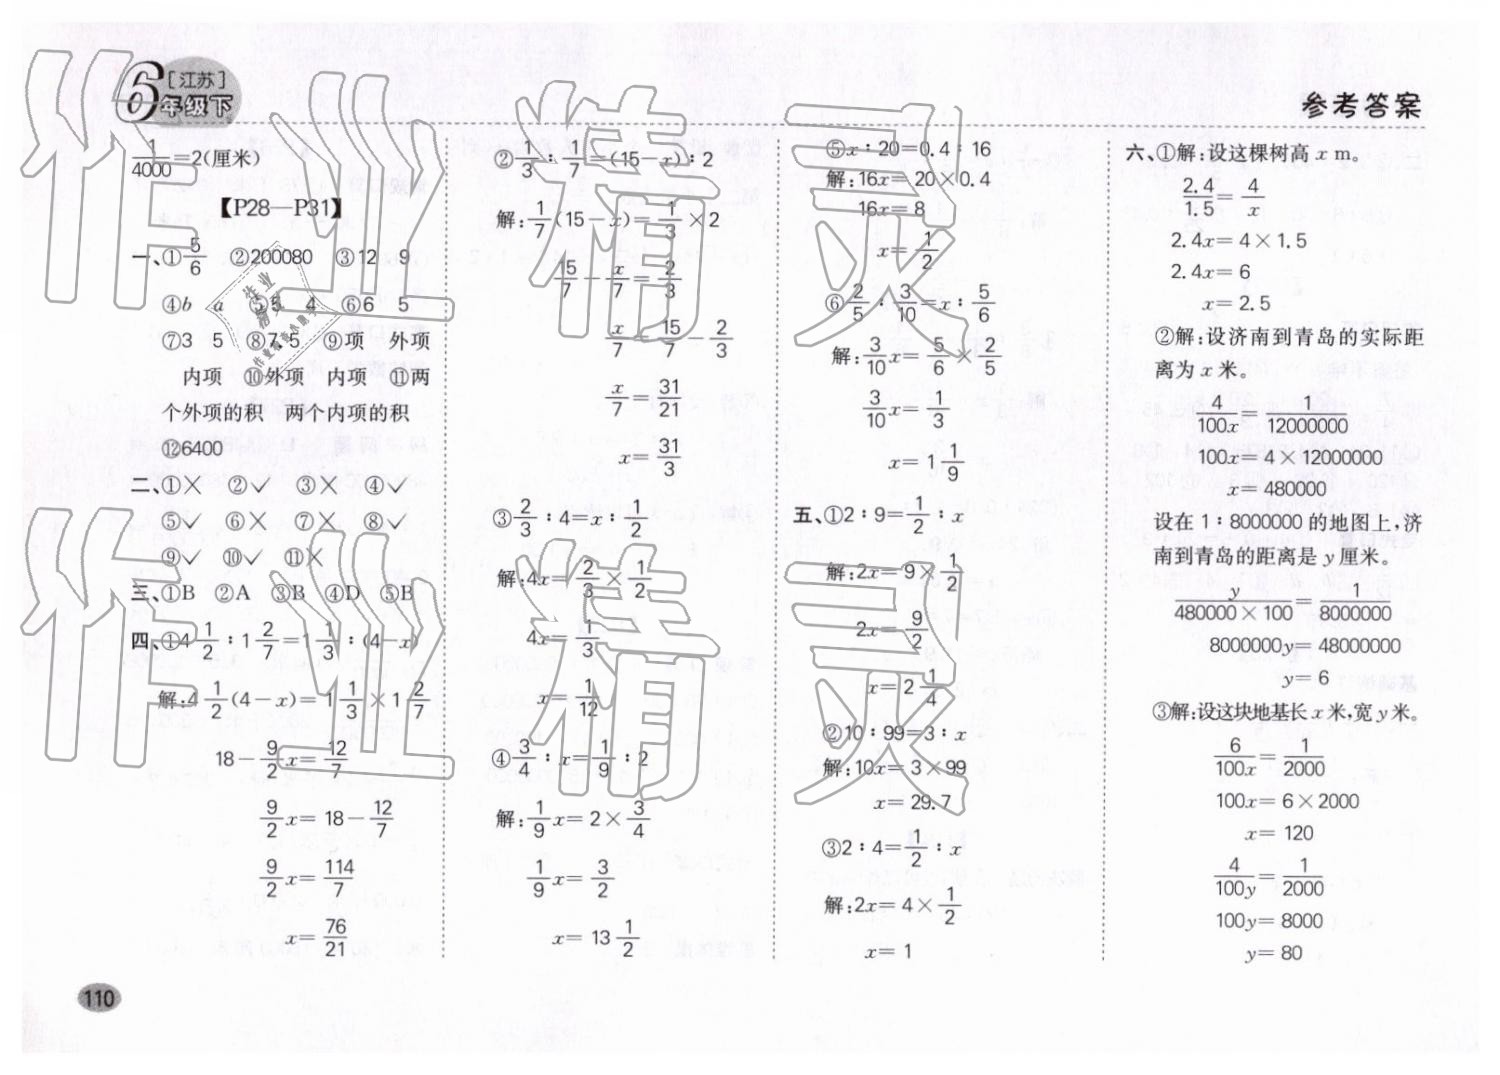 6 [江苏]
年级下
参考答案
1/4000=2(厘米)
【P28—P31】
一、①5/6 ②200080 ③12 9
④b a ⑤5 4 ⑥6 5
⑦3 5 ⑧7.5 ⑨项 外项
内项 ⑩外项 内项 ⑪两
个外项的积 两个内项的积
⑫6400
二、①× ②✓ ③× ④✓
⑤✓ ⑥× ⑦× ⑧✓
⑨✓ ⑩✓ ⑪×
三、①B ②A ③B ④D ⑤B
四、①4 1/2∶1 2/7=1 1/3∶(4-x)
解:4 1/2(4-x)=1 1/3×1 2/7
18-9/2x=12/7
9/2x=18-12/7
9/2x=114/7
x=76/21
②1/3∶1/7=(15-x)∶2
解:1/7(15-x)=1/3×2
15/7-x/7=2/3
x/7=15/7-2/3
x/7=31/21
x=31/3
③2/3∶4=x∶1/2
解:4x=2/3×1/2
4x=1/3
x=1/12
④3/4∶x=1/9∶2
解:1/9x=2×3/4
1/9x=3/2
x=13 1/2
⑤x∶20=0.4∶16
解:16x=20×0.4
16x=8
x=1/2
⑥2/5∶3/10=x∶5/6
解:3/10x=5/6×2/5
3/10x=1/3
x=1 1/9
五、①2∶9=1/2∶x
解:2x=9×1/2
2x=9/2
x=2 1/4
②10∶99=3∶x
解:10x=3×99
x=29.7
③2∶4=1/2∶x
解:2x=4×1/2
x=1
六、①解:设这棵树高 x m。
2.4/1.5=4/x
2.4x=4×1.5
2.4x=6
x=2.5
②解:设济南到青岛的实际距
离为 x 米。
4/100x=1/12000000
100x=4×12000000
x=480000
设在 1∶8000000 的地图上,济
南到青岛的距离是 y 厘米。
y/480000×100=1/8000000
8000000y=48000000
y=6
③解:设这块地基长 x 米,宽 y 米。
6/100x=1/2000
100x=6×2000
x=120
4/100y=1/2000
100y=8000
y=80
110
作业精灵
作业精灵